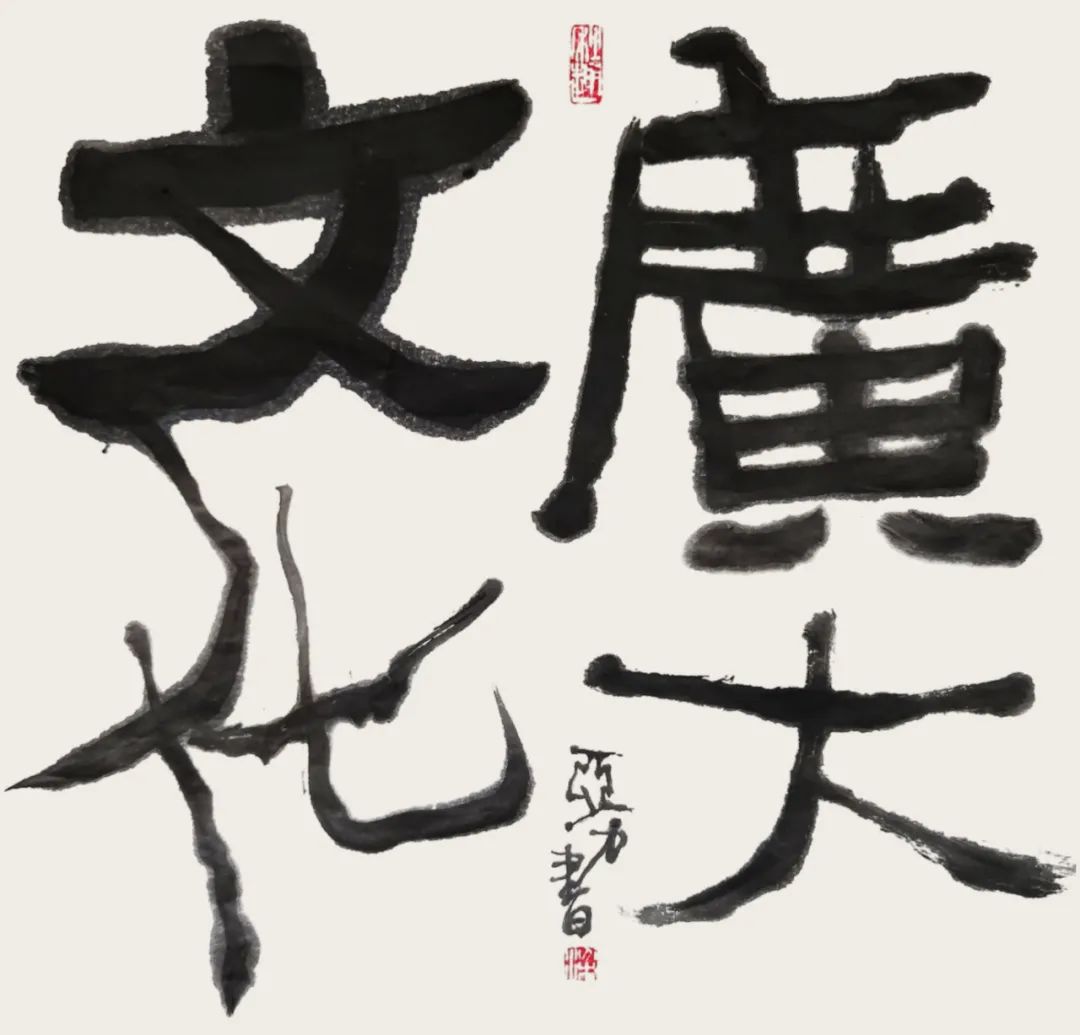 廣大
文化
亞力書